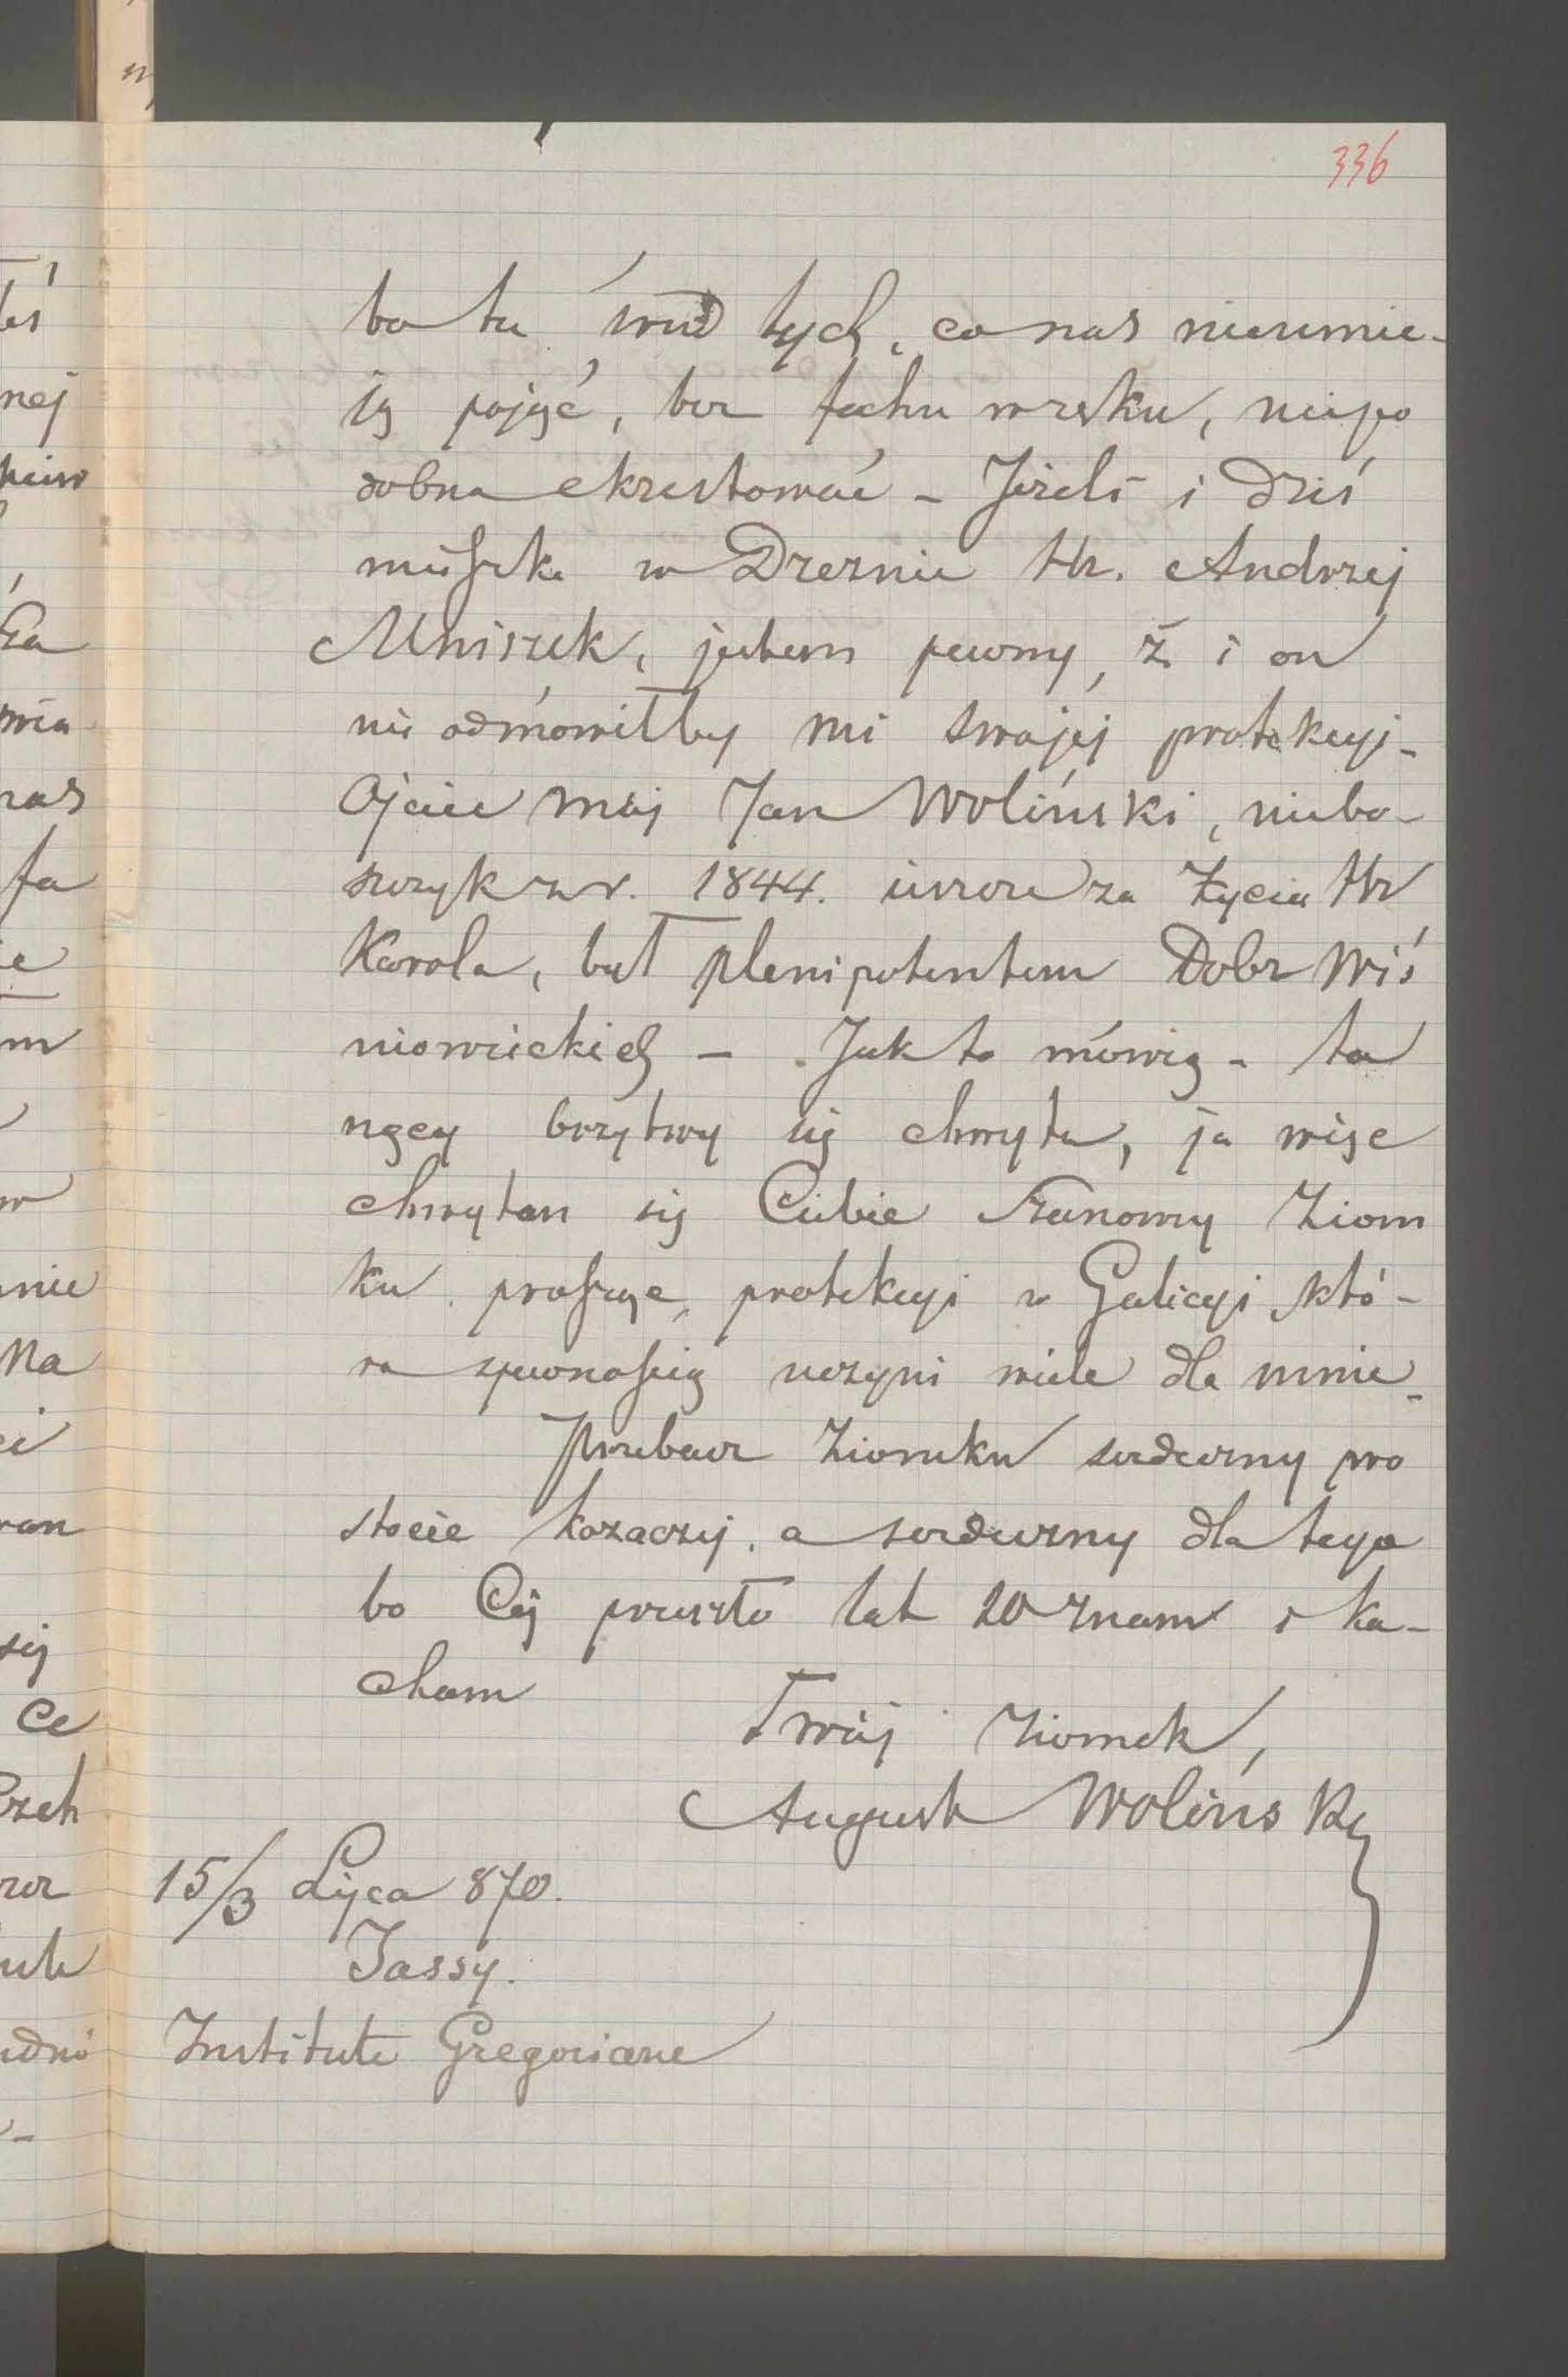 336
bo tu śród tych, co nas nieumie-
ją pojąć, bez fachu w ręku, niepo
dobna ekzestować - Jeżeli i dziś
mieszka w Dreznie Hr. Andrzej
Mniszek, jestem pewny, że i on
nie odmówiłby mi swojej protekcyi -
Ojciec mój Jan Woliński, niebo-
szczyk z r. 1844. jeszcze za życia Hr
Karola, był plenipotentem Dobr Wiś
niowieckich - Jak to mówią - to
nący brzytwy się chwyta, ja więc
chwytam się Ciebie Szanowny Ziom
ku prosząc, protekcyi w Galicyi któ-
ra zpewnością uczyni wiele dla mnie -
Przebacz Ziomku serdeczny pro
stocie kozaczej, a serdeczny dla tego
bo Cię przeszło lat 20 znam i ko-
cham
Twój Ziomek,
August Woliński
15/3 Lipca 870.
Jassy.
Institute Gregoriane